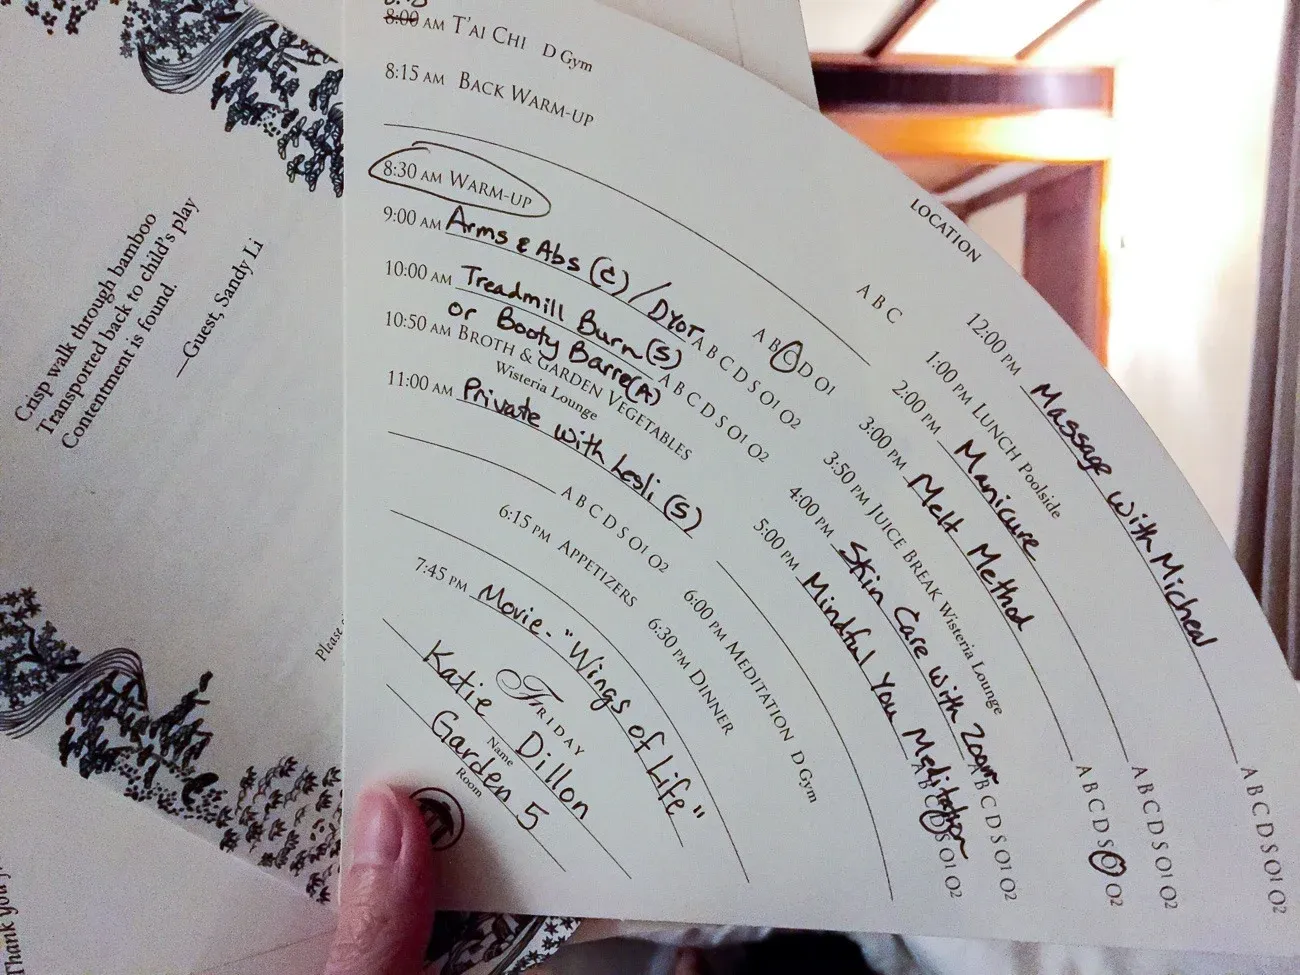 Crisp walk through bamboo
Transported back to child's play
Contentment is found.
—Guest, Sandy Li
Please
Thank you
8:00 AM T'AI CHI D Gym
8:15 AM BACK WARM-UP
LOCATION
8:30 AM WARM-UP A B C
9:00 AM Arms & Abs (C) / DYOT A B C D O1
10:00 AM Treadmill Burn (S) A B C D S O1 O2
or Booty Barre (A) A B C D S O1 O2
10:50 AM BROTH & GARDEN VEGETABLES
Wisteria Lounge
11:00 AM Private with Lesli (S)
A B C D S O1 O2
12:00 PM Massage with Micheal A B C D S O1 O2
1:00 PM LUNCH Poolside
2:00 PM Manicure A B C D S O1 O2
3:00 PM Melt Method A B C D S O1 O2
3:50 PM JUICE BREAK Wisteria Lounge
4:00 PM Skin Care with A B C D S O1 O2
5:00 PM Mindful You Meditation A B C D S O1 O2
6:00 PM MEDITATION D Gym
6:15 PM APPETIZERS
6:30 PM DINNER
7:45 PM Movie- "Wings of Life"
FRIDAY
Katie Dillon
Name
Garden 5
Room